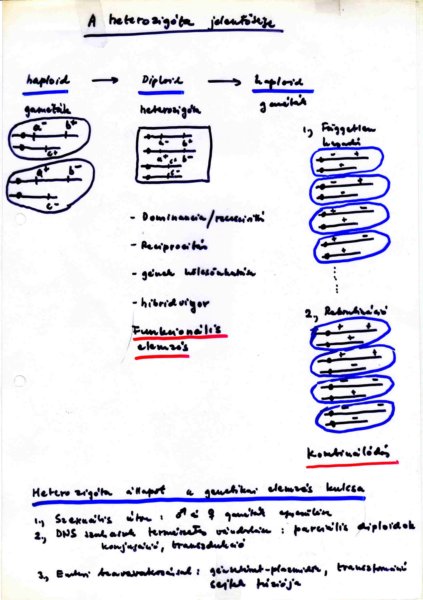 A heterozigóta jelentősége
haploid → Diploid → haploid
gaméták heterozigóta gaméták
a- b+
c+
a+ b-
c-
a- b+
c+
a+ b-
c-
1, Független hasadás
- Dominancia/recesszivitás
- Reciprocitás
- gének kölcsönhatása
- hibridvigor
Funkcionális
elemzés
2, Rekombináció
Kombinálódás
Heterozigóta állapot a genetikai elemzés kulcsa
1, Szexuális úton: ♂ és ♀ gaméták egyesülése
2, DNS szakaszok természetes vándorlása: parciális diploidok
konjugáció, transzdukció
3, Emberi beavatkozással: génkönyvtár-plazmidok, transzformáció
sejtek fúziója